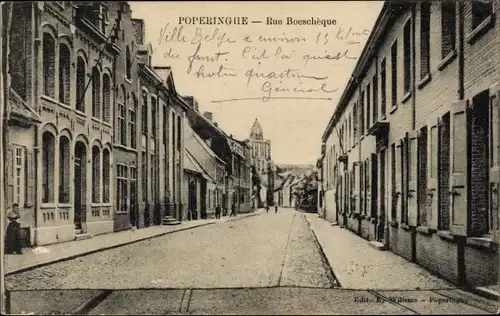 POPERINGHE — Rue Boeschèque
Ville Belge à environ 15 Km
du front, c'est là qu'est
notre quartier
Général
Edit. Ry-Willems - Poperinghe